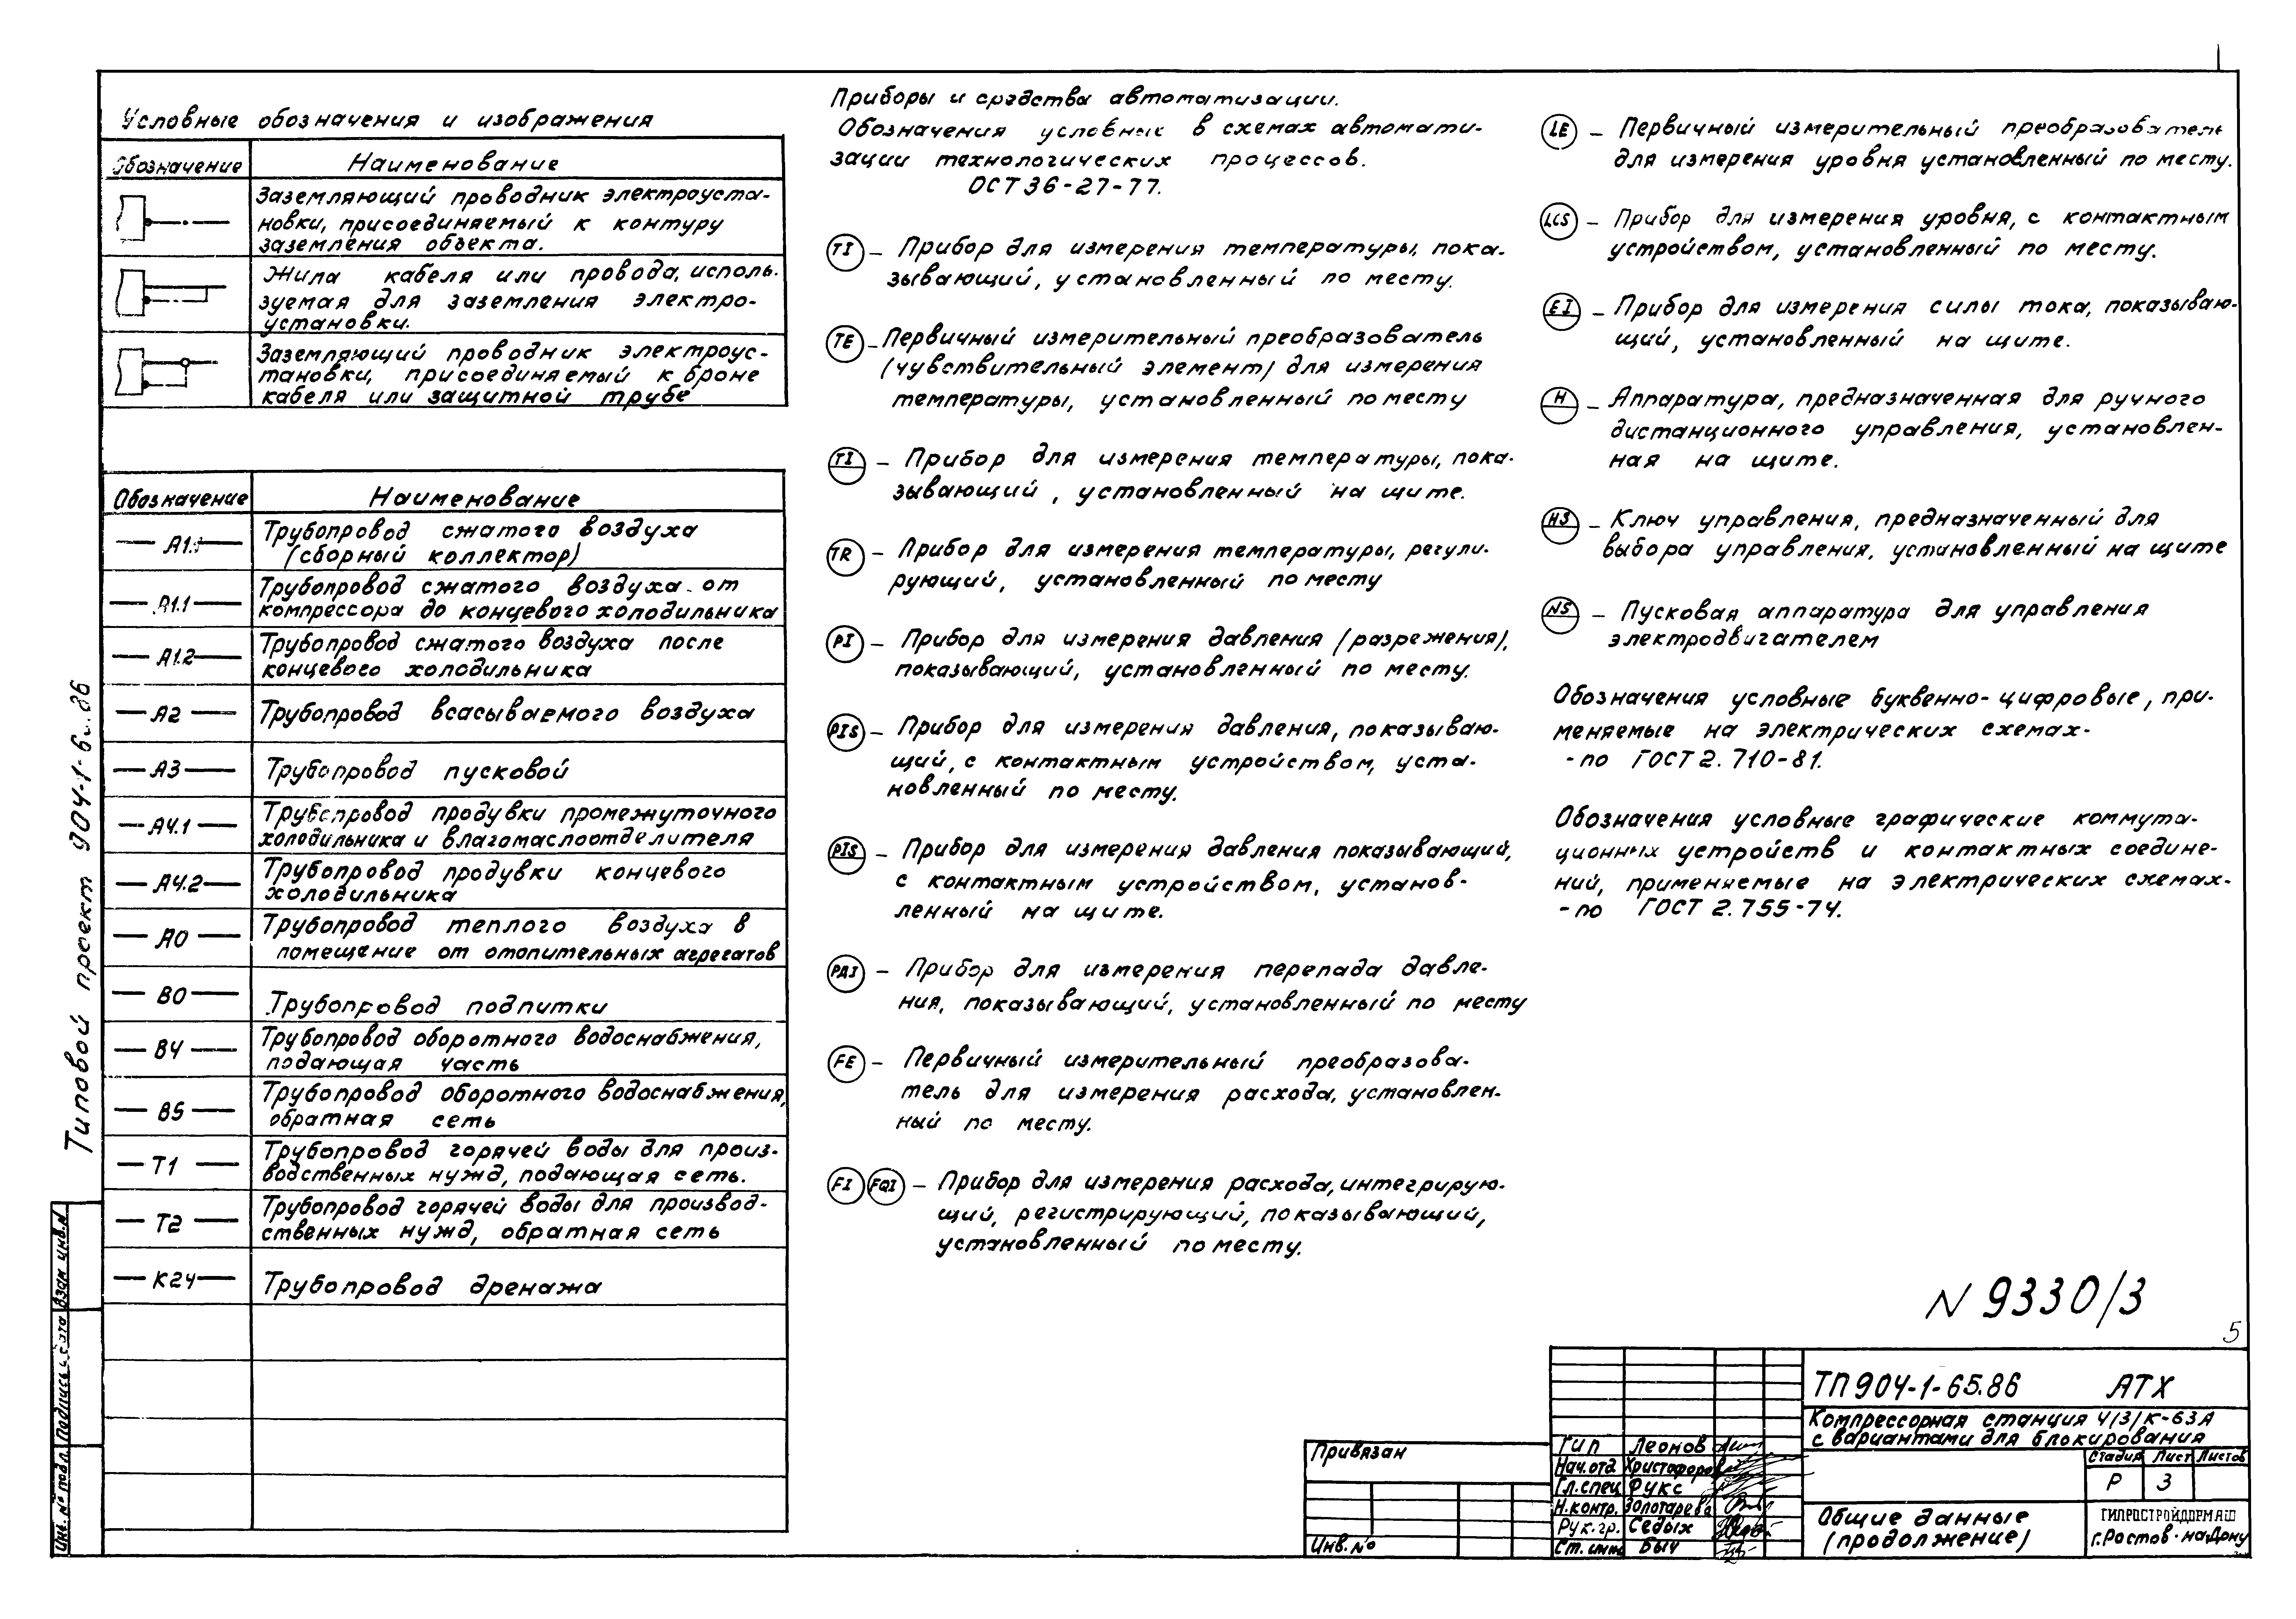 Условные обозначения и изображения
Обозначение Наименование
Заземляющий проводник электроуста-
новки, присоединяемый к контуру
заземления объекта.
Жила кабеля или провода, исполь-
зуемая для заземления электро-
установки.
Заземляющий проводник электроус-
тановки, присоединяемый к броне
кабеля или защитной трубе
Обозначение Наименование
Трубопровод сжатого воздуха
(сборный коллектор)
А1.1 Трубопровод сжатого воздуха от
компрессора до концевого холодильника
А1.2 Трубопровод сжатого воздуха после
концевого холодильника
А2 Трубопровод всасываемого воздуха
А3 Трубопровод пусковой
А4.1 Трубопровод продувки промежуточного
холодильника и влагомаслоотделителя
А4.2 Трубопровод продувки концевого
холодильника
А0 Трубопровод теплого воздуха в
помещение от отопительных агрегатов
В0 Трубопровод подпитки
В4 Трубопровод оборотного водоснабжения,
подающая часть
В5 Трубопровод оборотного водоснабжения,
обратная сеть
Т1 Трубопровод горячей воды для произ-
водственных нужд, подающая сеть.
Т2 Трубопровод горячей воды для производ-
ственных нужд, обратная сеть
К24 Трубопровод дренажа
Приборы и средства автоматизации.
Обозначения условные в схемах автомати-
зации технологических процессов.
ОСТ 36-27-77.
TI – Прибор для измерения температуры, пока-
зывающий, установленный по месту.
TE – Первичный измерительный преобразователь
(чувствительный элемент) для измерения
температуры, установленный по месту
TI – Прибор для измерения температуры, пока-
зывающий, установленный на щите.
TR – Прибор для измерения температуры, регули-
рующий, установленный по месту
PI – Прибор для измерения давления (разрежения),
показывающий, установленный по месту.
PIS – Прибор для измерения давления, показываю-
щий, с контактным устройством, уста-
новленный по месту.
PIS – Прибор для измерения давления показывающий,
с контактным устройством, установ-
ленный на щите.
PДI – Прибор для измерения перепада давле-
ния, показывающий, установленный по месту
FE – Первичный измерительный преобразова-
тель для измерения расхода, установлен-
ный по месту.
FI FQI – Прибор для измерения расхода, интегрирую-
щий, регистрирующий, показывающий,
установленный по месту.
LE – Первичный измерительный преобразователь
для измерения уровня установленный по месту.
LCS – Прибор для измерения уровня, с контактным
устройством, установленный по месту.
EI – Прибор для измерения силы тока, показываю-
щий, установленный на щите.
H – Аппаратура, предназначенная для ручного
дистанционного управления, установлен-
ная на щите.
HS – Ключ управления, предназначенный для
выбора управления, установленный на щите
NS – Пусковая аппаратура для управления
электродвигателем
Обозначения условные буквенно-цифровые, при-
меняемые на электрических схемах-
-по ГОСТ 2.710-81.
Обозначения условные графические коммута-
ционных устройств и контактных соедине-
ний, применяемые на электрических схемах-
-по ГОСТ 2.755-74.
N 9330/3
5
ТП 904-1-65.86 АТХ
Компрессорная станция 4(3)К-63А
с вариантами для блокирования
Стадия Лист Листов
Р 3
Общие данные
(продолжение)
ГИПРОСТРОЙДОРМАШ
г.Ростов-на-Дону
Гип Леонов
Нач.отд Христофоров
Гл.спец Фукс
Н.контр. Золотарева
Рук.гр. Седых
Ст.инж Быч
Привязан
Инв.№
Типовой проект 904-1-
Инв.№подл. Подпись и дата Взам инв.N